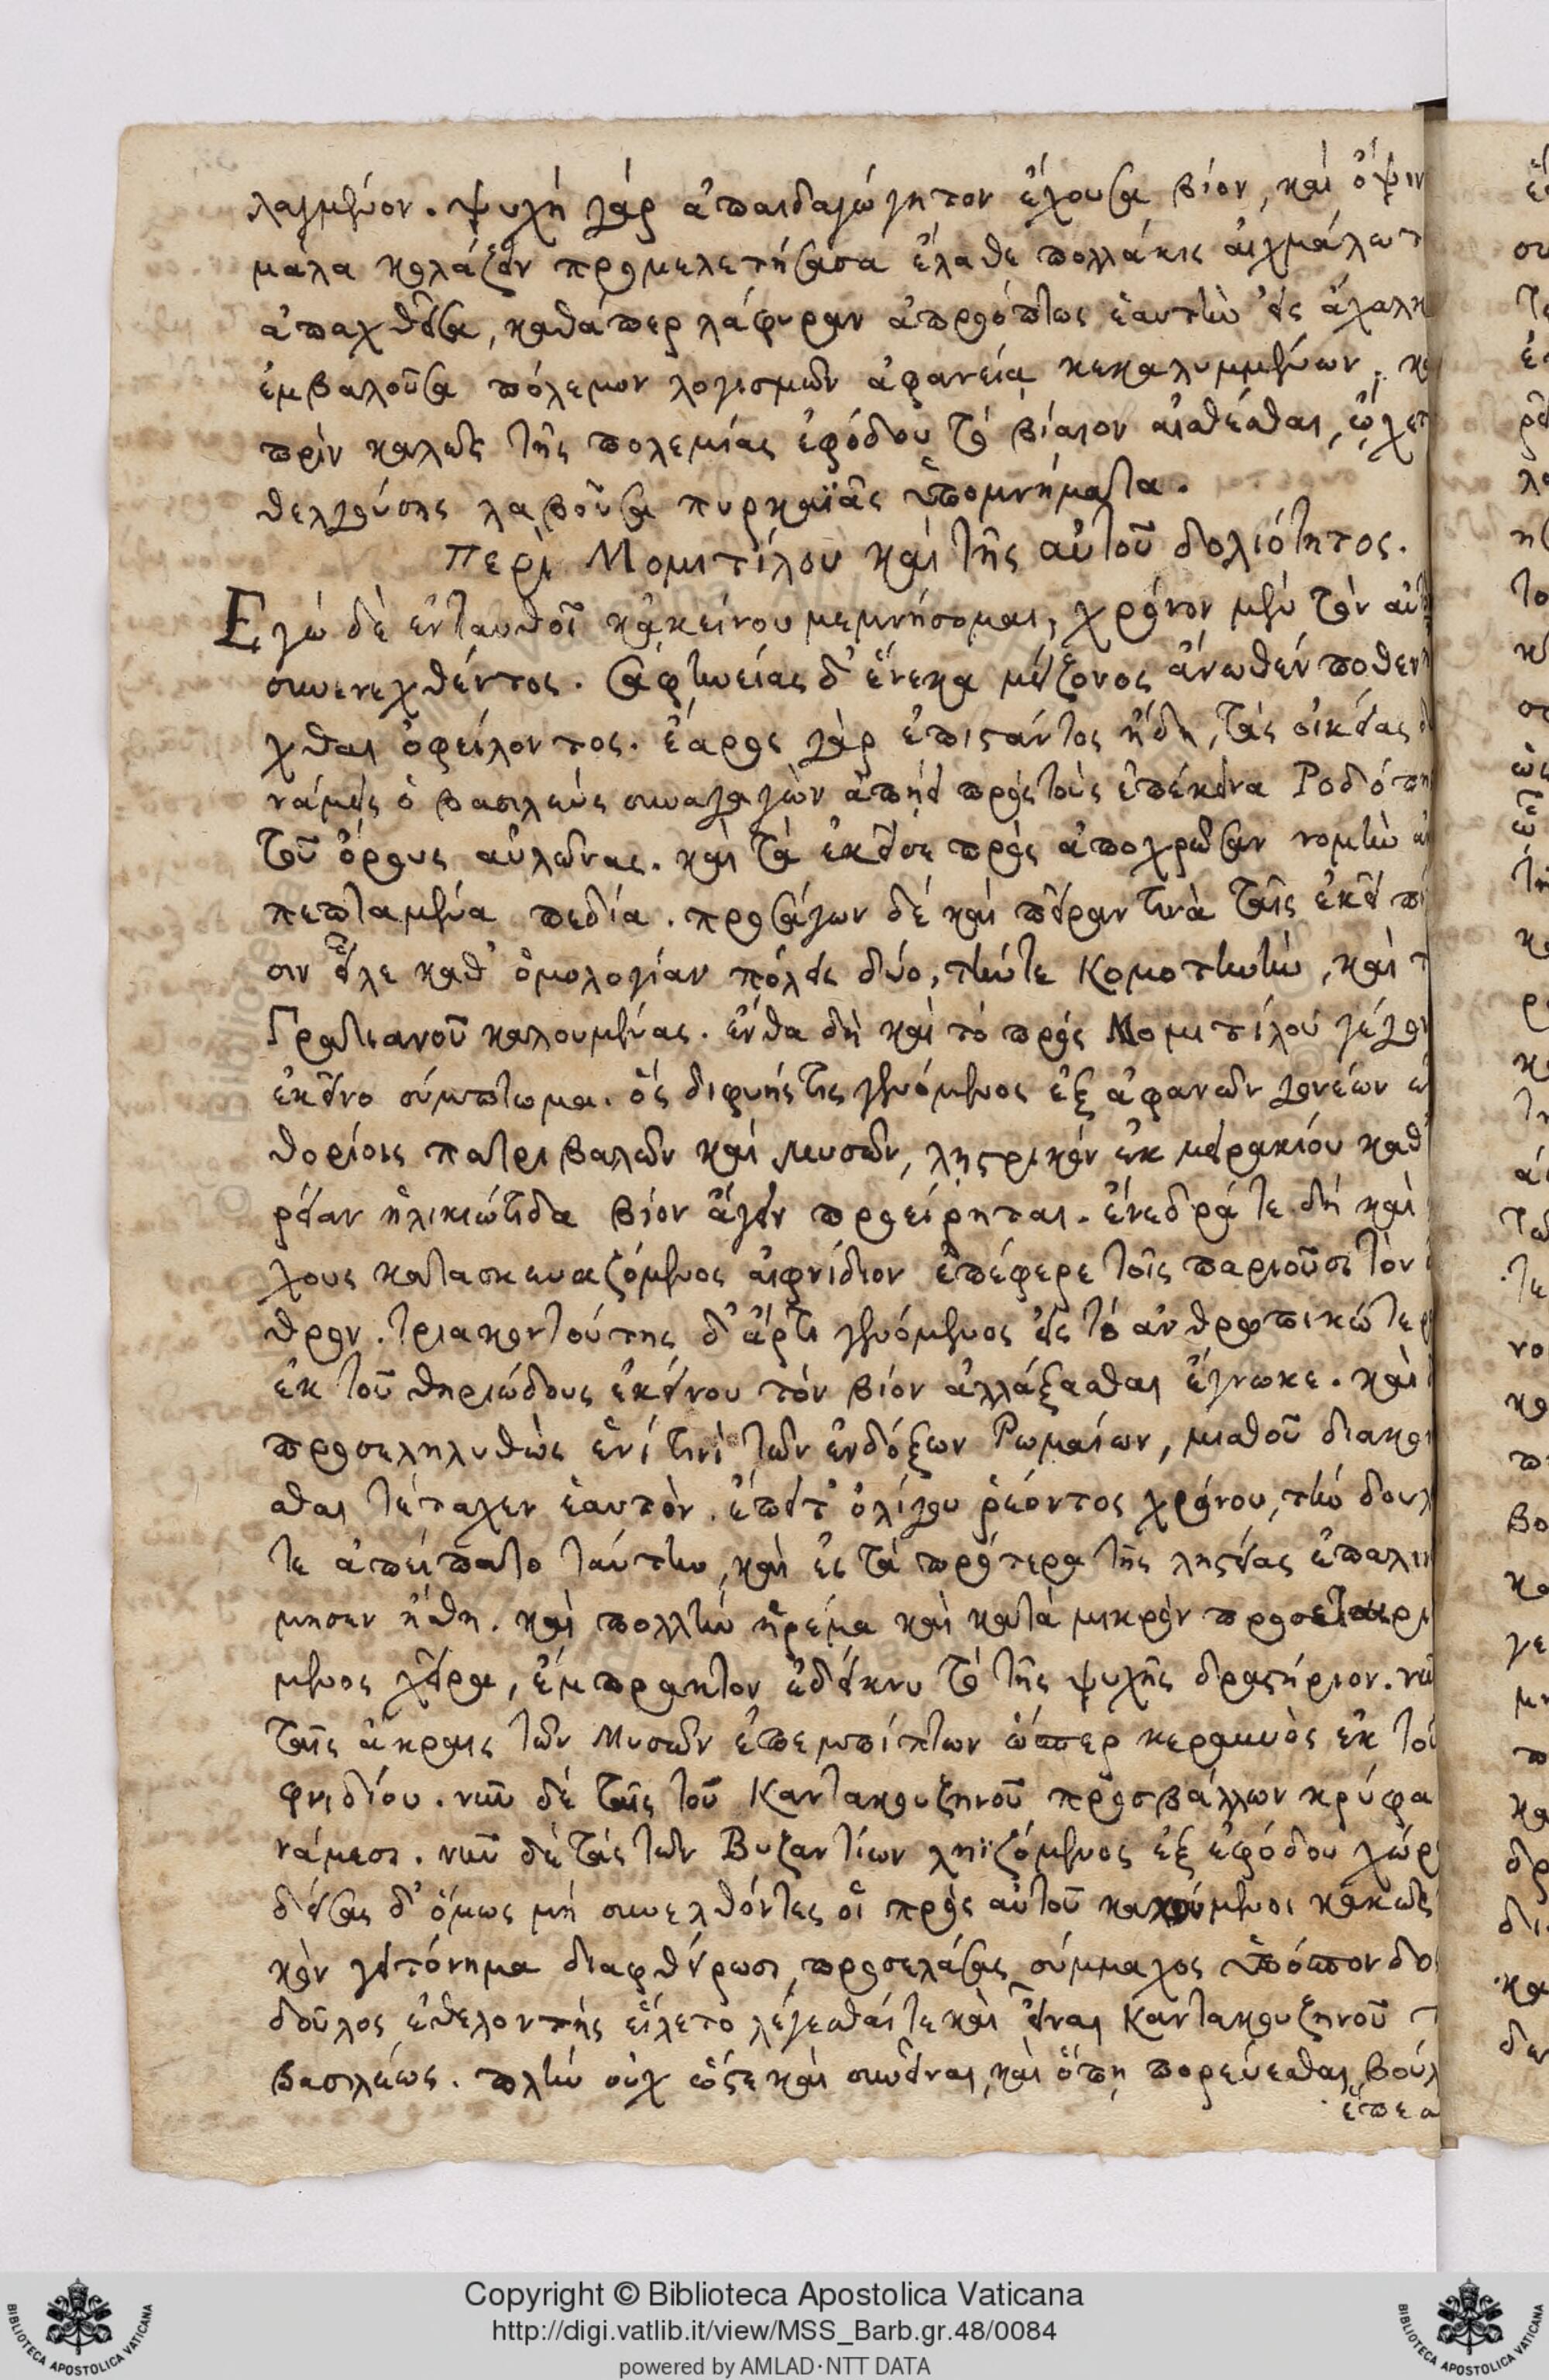 λαγμένον. ψυχὴ γὰρ ἀπαιδαγώγητον ἔχουσα βίον, καὶ ὄψιν
μάλα κολάζειν προμελετήσασα ἔλαθε πολλάκις αἰχμάλωτ
ἀπαχθεῖσα, καθάπερ λάφυραν ἀπροόπτως ἑαυτὴν εἰς
ἐμβαλοῦσα πόλεμον λογισμῶν ἀφανεία κεκαλυμμένων. κα
πρὶν καλῶς τῆς πολεμίας ἐφόδου τὸ βίαιον αἰσθέσθαι, ᾤχετ
θελγούσης λαβοῦσα πυρκαϊᾶς ὑπομνήματα.
Περὶ Μομιτίλου καὶ τῆς αὐτοῦ δολιότητος.
Ἐγὼ δὲ ἐνταυθοῖ κἀκείνου μεμνήσομαι, χρόνον μὲν τὸν αὐτ
συνενεχθέντος. σαφηνείας δ' ἕνεκα μείζονος ἄνωθέν ποθεν
χθαι ὀφείλοντος. ἔαρος γὰρ ἐπιστάντος ἤδη, τὰς οἰκείας δ
νάμεις ὁ βασιλεὺς συναγαγὼν ἀπῄει πρὸς τοὺς ἐπέκεινα Ῥοδόπη
τοῦ ὄρους αὐλῶνας. καὶ τὰ ἐκεῖσε πρὸς ἀποχρῶσαν νομὴν ἀ
πεπταμένα πεδία. προσάγων δὲ καὶ πεῖραν τινὰ ταῖς ἐκεῖ π
σιν εἷλε καθ' ὁμολογίαν πόλεις δύο, τήντε Κομοτηνὴν, καὶ τ
Γρατιανοῦ καλουμένας. ἔνθα δὴ καὶ τὸ πρὸς Μομιτίλου γέγον
ἐκεῖνο σύμπτωμα. ὃς διφυής τις γενόμενος ἐξ ἀφανῶν γονέων ἐν
θορίοις πατριβαλῶν καὶ μυσῶν, λῃστρικὸν ἐκ μειρακίου καθ'
ρείαν ἡλικιώτιδα βίον ἄγειν προείρηται. ἐνεδρά τε δὴ καὶ
χους κατασκευαζόμενος αἰφνίδιον ἐπέφερε τοῖς παριοῦσι τὸν
θρον. τριακοντούτης δ' ἄρτι γενόμενος εἰς τὸ ἀνθρωπικώτερ
ἐκ τοῦ θηριώδους ἐκείνου τὸν βίον ἀλλάξασθαι ἔγνωκε. καὶ
προσεληλυθὼς ἑνί τινι τῶν ἐνδόξων Ῥωμαίων, μισθοῦ διακον
σθαι τέταχεν ἑαυτὸν. ἔπειτ' ὀλίγου ῥέοντος χρόνου, τὴν δουλ
τε ἀπείπατο ταύτην, καὶ ἐς τὰ πρότερα τῆς λῃστείας ἐπαλιν
μησεν ἤθη. καὶ πολλὴν ἠρέμα καὶ κατὰ μικρὸν προσεταιρι
μενος χεῖρα, ἔμπρακτον ἐδείκνυ τὸ τῆς ψυχῆς δραστήριον. νῦν
ταῖς ἄκραις τῶν Μυσῶν ἐπεμπίπτων ὥσπερ κεραυνὸς ἐκ τοῦ
φνιδίου. νῦν δὲ ταῖς τοῦ Καντακουζηνοῦ προσβάλλων κρύφα
νάμεσι. νῦν δὲ τὰς τῶν Βυζαντίων ληϊζόμενος ἐξ ἐφόδου χώρ
δείσας δ' ὅμως μὴ συνελθόντες οἱ πρὸς αὐτοῦ κακούμενοι κακῶς
κὸν γειτόνημα διαφθείρωσι, προσελάσας σύμμαχος ὑπόσπονδο
δοῦλος ἐθελοντὴς εἵλετο λέγεσθαί τε καὶ εἶναι Καντακουζηνοῦ τ
βασιλέως. πλὴν οὐχ ὥστε καὶ συνεῖναι, καὶ ὅπη πορεύεσθαι βούλ
ἕπεσ